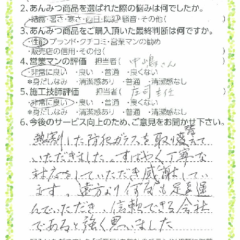 2.あんみつ商品を選ばれた際の悩みは何でしたか。
結露・暑さ・寒さ・西日・騒音・防音・その他(
3.あんみつ商品をご購入頂いた最終判断は何ですか。
性能・ブランド・クチコミ・営業マンの勧め
販売店の信用・その他(
4.営業マンの評価 担当者(
・非常に良い・良い・普通・良くない
※身だしなみ・清潔感あり・普通・清潔感なし
5.施工技師評価 担当者(
・非常に良い・良い・普通・良くない
※身だしなみ・清潔感あり・普通・清潔感なし
6.今後のサービス向上のため、ご意見をお聞かせ下さい。
熱割した防犯ガラスを取り替えて
いただきました。すばやく丁寧な
対応をしていただき感謝してい
ます。遠方より何度も足を運
んでいただき、信頼できる会社
であると強く思いました